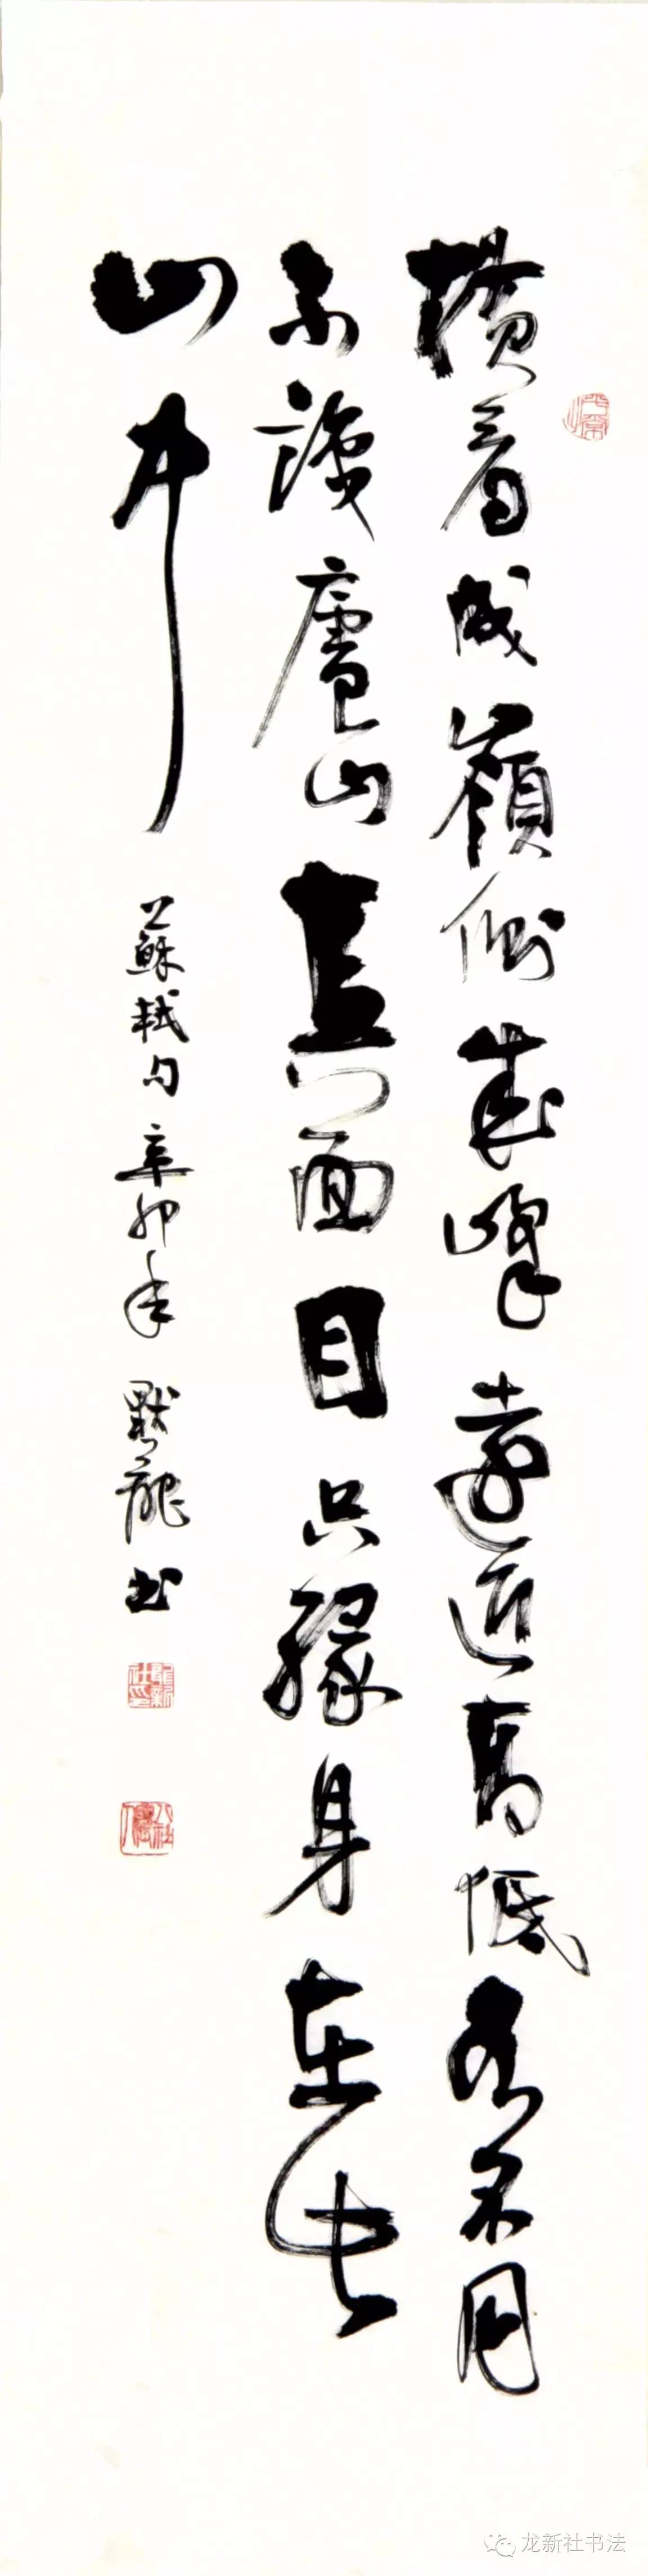 橫看成嶺側成峰遠近高低各不同
不識廬山真面目只緣身在此
山中
蘇軾句辛卯年默龍書
龍新社印
龙新社书法